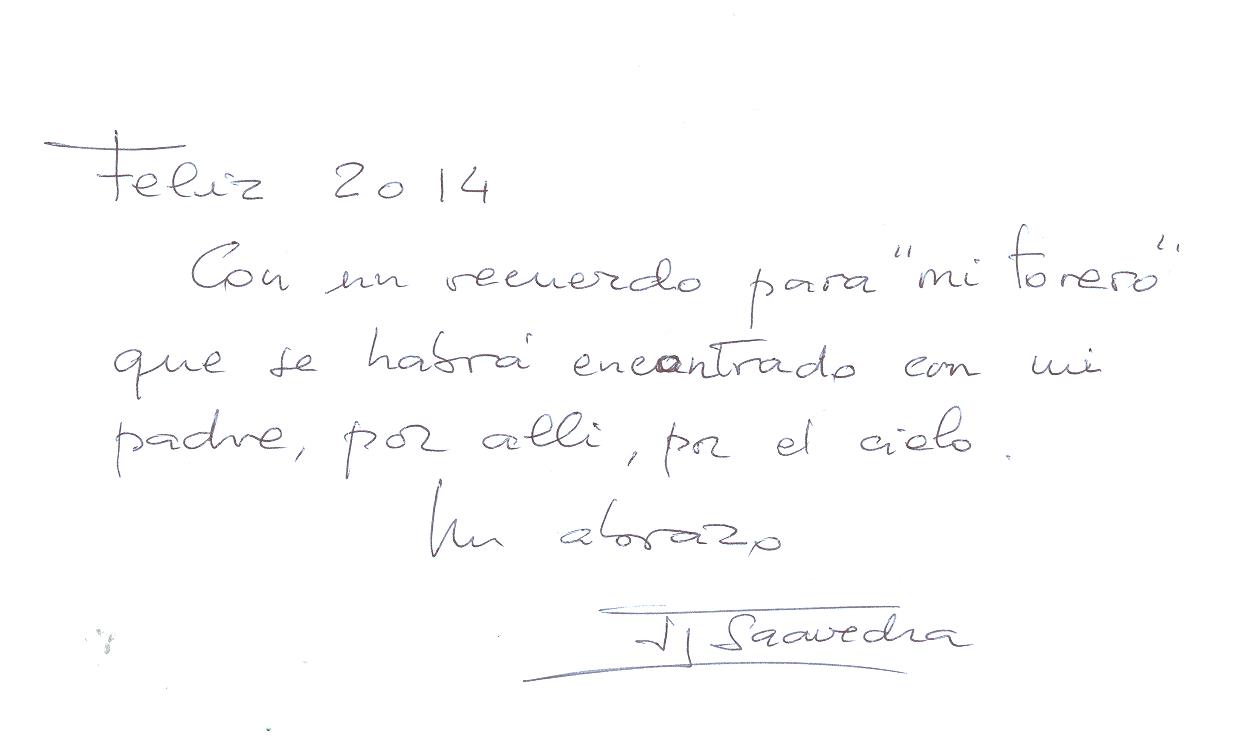 Feliz 2014
Con un recuerdo para "mi torero"
que se habrá encontrado con mi
padre, por alli, por el cielo.
Un abrazo
JJ Saavedra